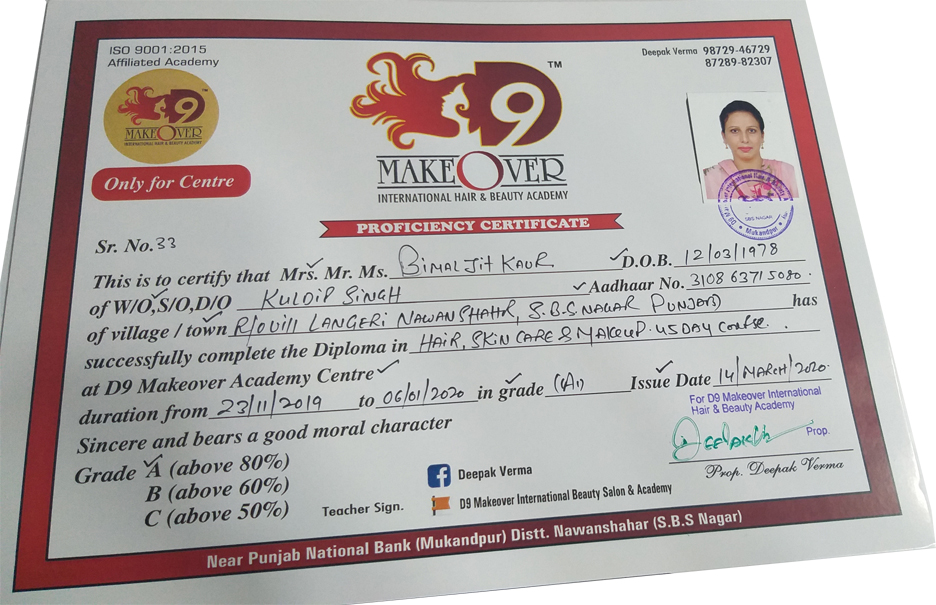 ISO 9001:2015
Affiliated Academy
Deepak Verma 98729-46729
87289-82307
D9
MAKEOVER
INTERNATIONAL HAIR & BEAUTY ACADEMY
D9
TM
MAKEOVER
INTERNATIONAL HAIR & BEAUTY ACADEMY
Only for Centre
PROFICIENCY CERTIFICATE
SBS NAGAR
Mukandpur
Sr. No. 33
This is to certify that Mrs. Mr. Ms. Bimal Jit Kaur D.O.B. 12/03/1978
of W/O, S/O, D/O KULDIP SINGH Aadhaar No. 3108 6371 5080
of village / town R/O Vill LANGERI NAWANSHAHR, S.B.S NAGAR PUNJAB has
successfully complete the Diploma in HAIR, SKIN CARE & MAKEUP 45 DAY Course.
at D9 Makeover Academy Centre
duration from 23/11/2019 to 06/01/2020 in grade (A) Issue Date 14/MARCH/2020.
Sincere and bears a good moral character
For D9 Makeover International
Hair & Beauty Academy
Deepak
Prop.
Prop. Deepak Verma
Grade A (above 80%)
B (above 60%)
C (above 50%)
Teacher Sign.
Deepak Verma
D9 Makeover International Beauty Salon & Academy
Near Punjab National Bank (Mukandpur) Distt. Nawanshahar (S.B.S Nagar)